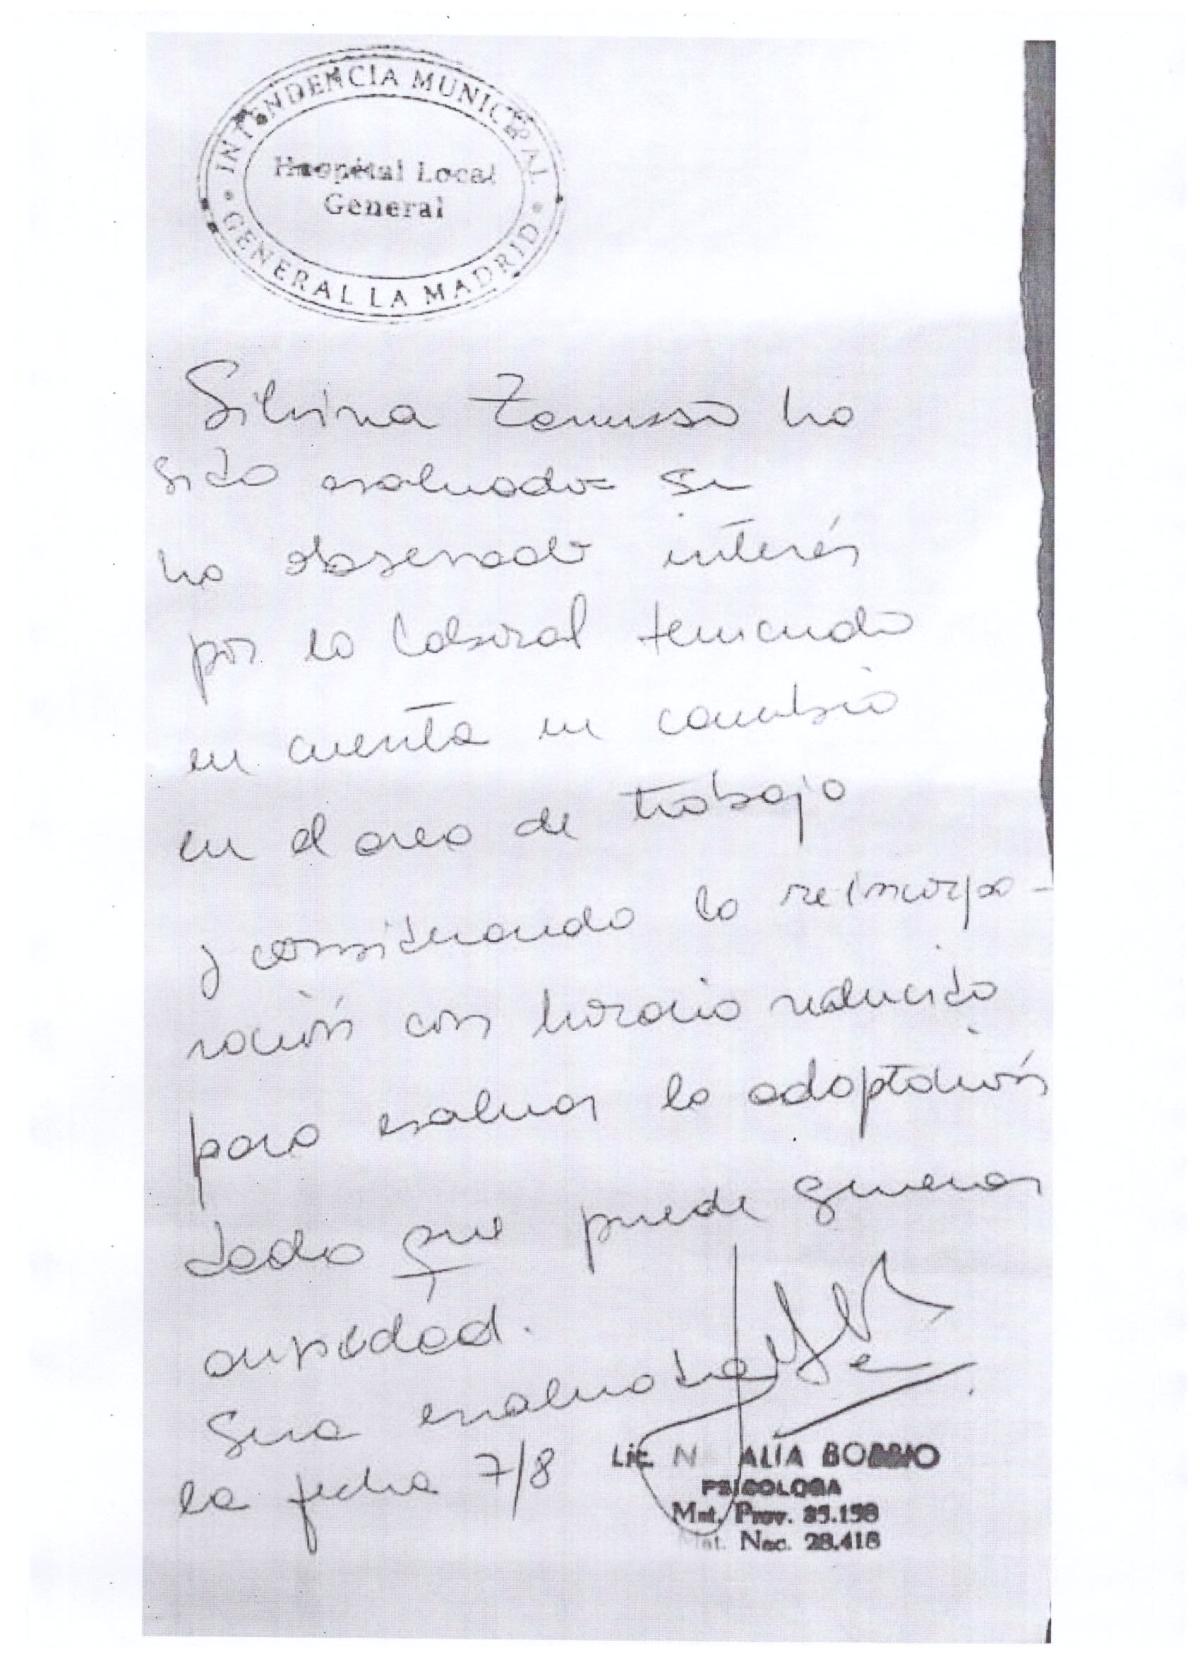 INTENDENCIA MUNICIPAL
Hospital Local
General
GENERAL LA MADRID
Silvina Zanusso ha
sido evaluada se
ha observado interés
por lo laboral teniendo
en cuenta un cambio
en el area de trabajo
y considerando la reincorpo-
ración con horario reducido
para evaluar la adaptación
dado que puede generar
ansiedad.
Sera evaluada
la fecha 7/8
Lic. N ALIA BOBBIO
PSICOLOGA
Mat. Prov. 35.158
Mat. Nac. 28.418